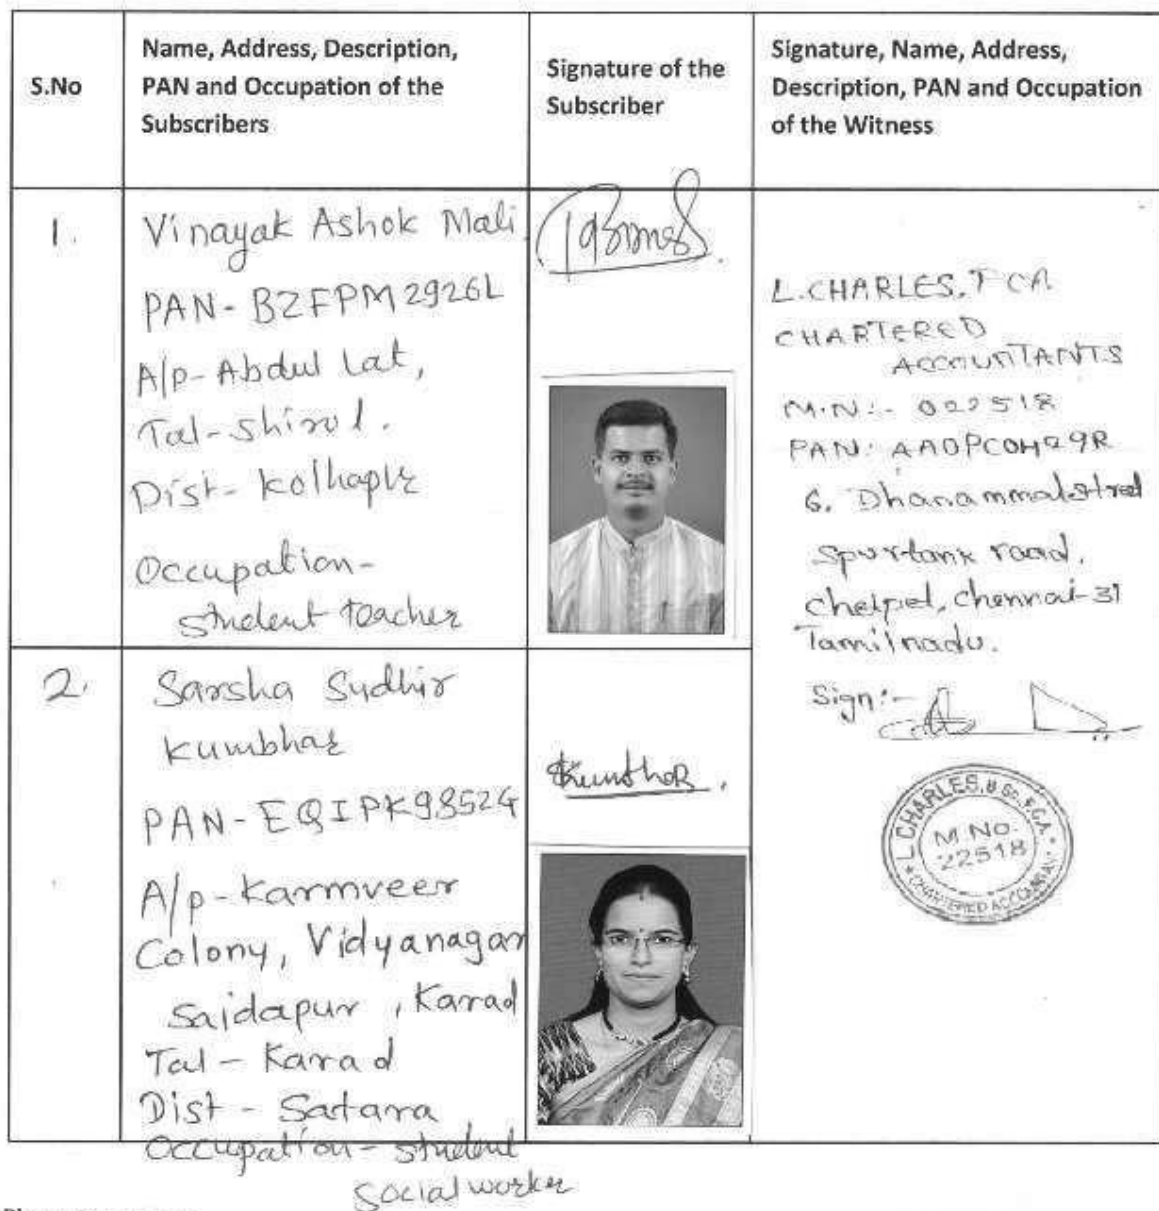 S.No
Name, Address, Description,
PAN and Occupation of the
Subscribers
Signature of the
Subscriber
Signature, Name, Address,
Description, PAN and Occupation
of the Witness
1.
Vinayak Ashok Mali
PAN- BZFPM2926L
A/p- Abdul Lat,
Tal- Shirol.
Dist- Kolhapur
Occupation-
student teacher
L. CHARLES, FCA
CHARTERED
ACCOUNTANTS
M.N:- 022518
PAN:
6. Dhanammal street
Spurtank road,
Chetpet, Chennai-31
Tamilnadu.
Sign:-
2.
Sarsha Sudhir
Kumbhar
PAN- EQIPK9852G
A/p- Karmveer
Colony, Vidyanagar
Saidapur, Karad
Tal - Karad
Dist - Satara
Occupation - student
social worker
Kumbhar.
L. CHARLES, B.Sc., F.C.A.
M.No.
22518
CHARTERED ACCOUNTANT